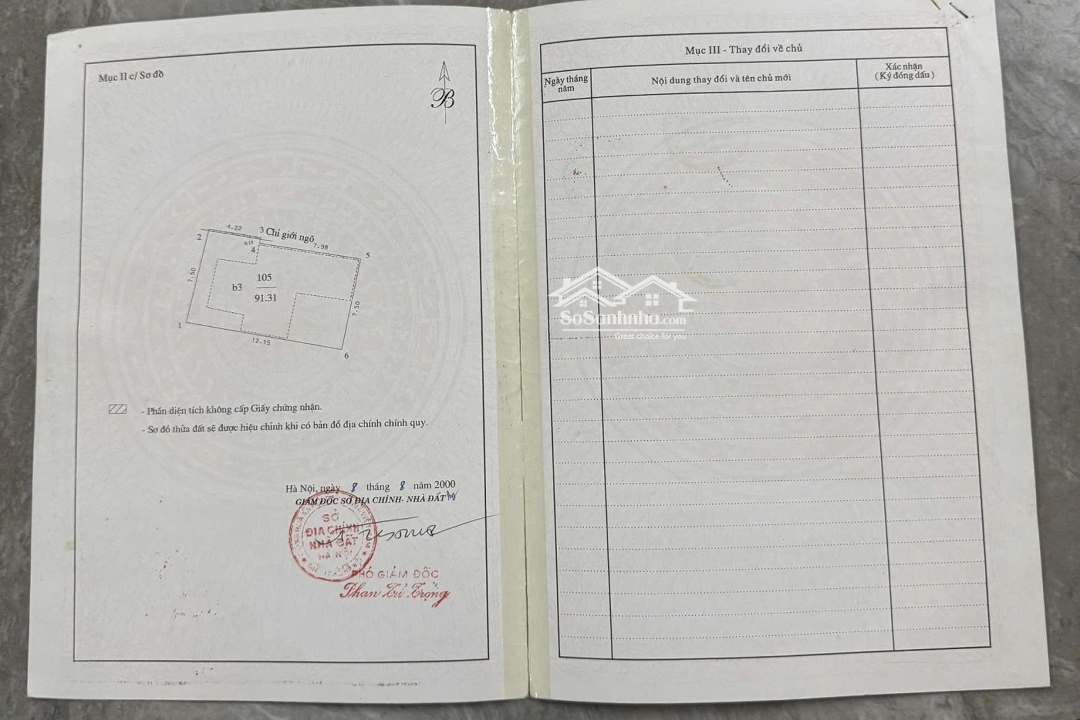 Mục II c/ Sơ đồ
B
2
4.22
3 Chỉ giới ngõ
4
7.98
5
7.50
b3
105
91.31
7.50
1
12.15
6
- Phần diện tích không cấp Giấy chứng nhận.
- Sơ đồ thửa đất sẽ được hiệu chỉnh khi có bản đồ địa chính chính quy.
Hà Nội, ngày 8 tháng 8 năm 2000
GIÁM ĐỐC SỞ ĐỊA CHÍNH- NHÀ ĐẤT
SỞ
ĐỊA CHÍNH
NHÀ ĐẤT
HÀ NỘI
PHÓ GIÁM ĐỐC
Phan Tử Trọng
Mục III - Thay đổi về chủ
Ngày tháng năm
Nội dung thay đổi và tên chủ mới
Xác nhận
( Ký đóng dấu )
SoSanhnha.com
Great choice for you